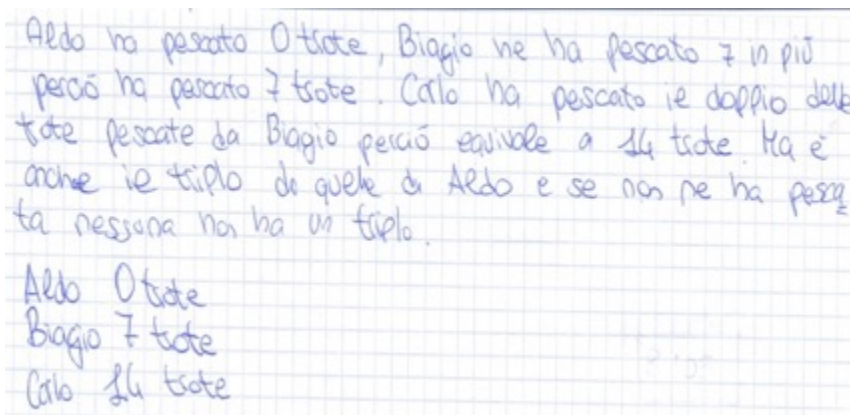 Aldo ha pescato 0 trote, Biagio ne ha pescato 7 in più
perciò ha pescato 7 trote. Carlo ha pescato ie doppio delle
trote pescate da Biagio perciò equivale a 14 trote. Ma è
anche ie triplo di quelle di Aldo e se non ne ha pesca
ta nessuna non ha un triplo.
Aldo 0 trote
Biagio 7 trote
Carlo 14 trote